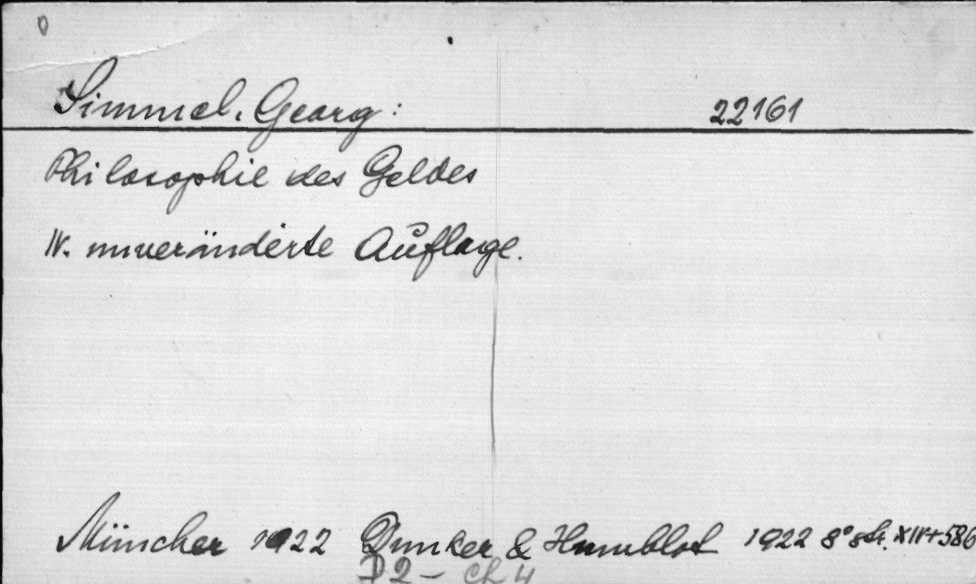 0
Simmel, Georg: 22161
Philosophie des Geldes
IV. unveränderte Auflage.
München 1922 Dunker & Humblot 1922 8° str. XIV+586
D2 - Ch 4